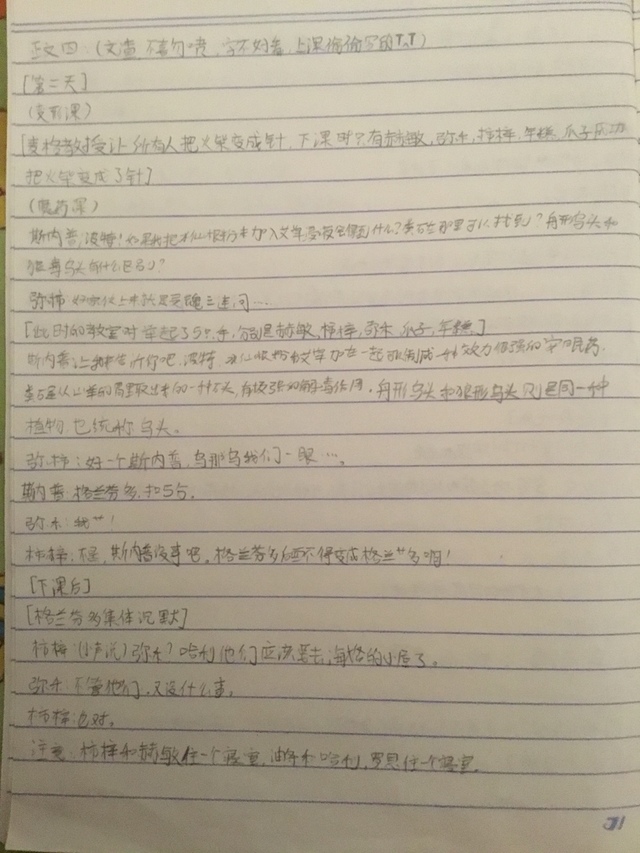 正文四：(文渣，不喜勿喷，字不好看，上课偷偷写的T^T)
[第二天]
(变形课)
[麦格教授让所有人把火柴变成针，下课时只有赫敏，弥禾，柿梓，年糕，瓜子成功
把火柴变成了针]
(魔药课)
斯内普：波特！如果我把水仙根粉末加入艾草会得到什么？粪石在那里可以找到？舟形乌头和
狼毒乌头有什么区别？
弥柿：灵魂三连问…
[此时 教室对 举起了5只手，分别是赫敏，柿梓，弥禾，瓜子，年糕]
斯内普：让我来告诉你吧，波特，水仙根粉和艾草加在一起可以制成一种效力很强的安眠药。
粪石是从山羊的胃里取出来的一种石头，有极强的解毒作用。舟形乌头和狼形乌头则是同一种
植物，也统称乌头。
弥柿：好一个斯内普，乌那乌我们一眼…。
斯内普：格兰芬多，扣5分。
弥禾：我艹！
柿梓：不是，斯内普没事吧，格兰芬多 不得变成格兰艹多啊！
[下课后]
[格兰芬多集体沉默]
柿梓：(小声说)弥禾？哈利他们应该是去海格的小屋了。
弥禾：不管他们，又没什么事。
柿梓：也对。
注意：柿梓和赫敏住一个寝室，弥禾和哈利，罗恩住一个寝室